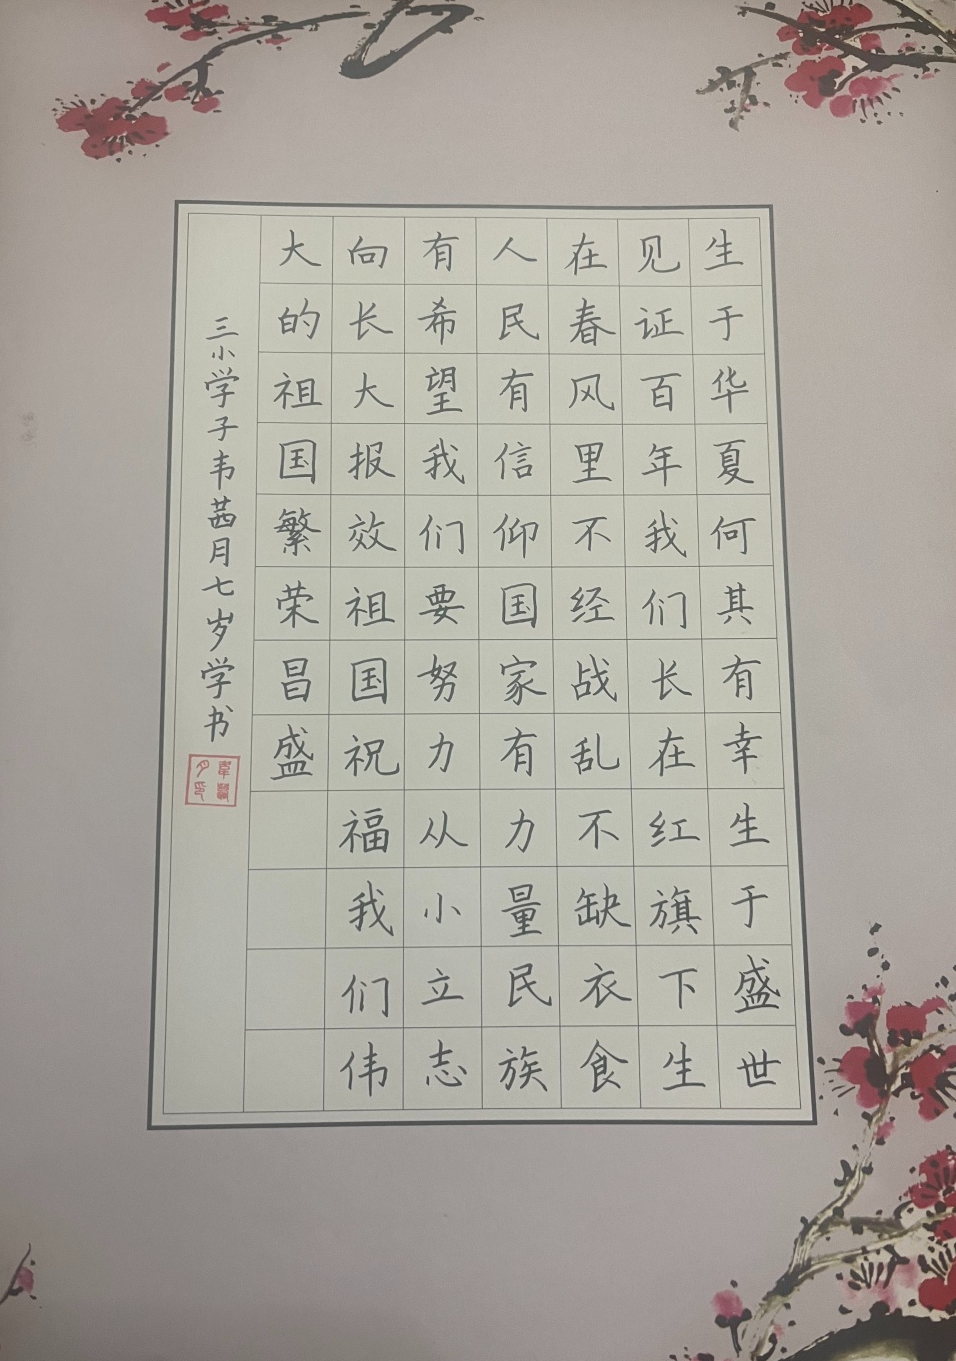 生于华夏何其有幸生于盛世
见证百年我们长在红旗下生
在春风里不经战乱不缺衣食
人民有信仰国家有力量民族
有希望我们要努力从小立志
向长大报效祖国祝福我们伟
大的祖国繁荣昌盛
三小学子韦茜月七岁学书